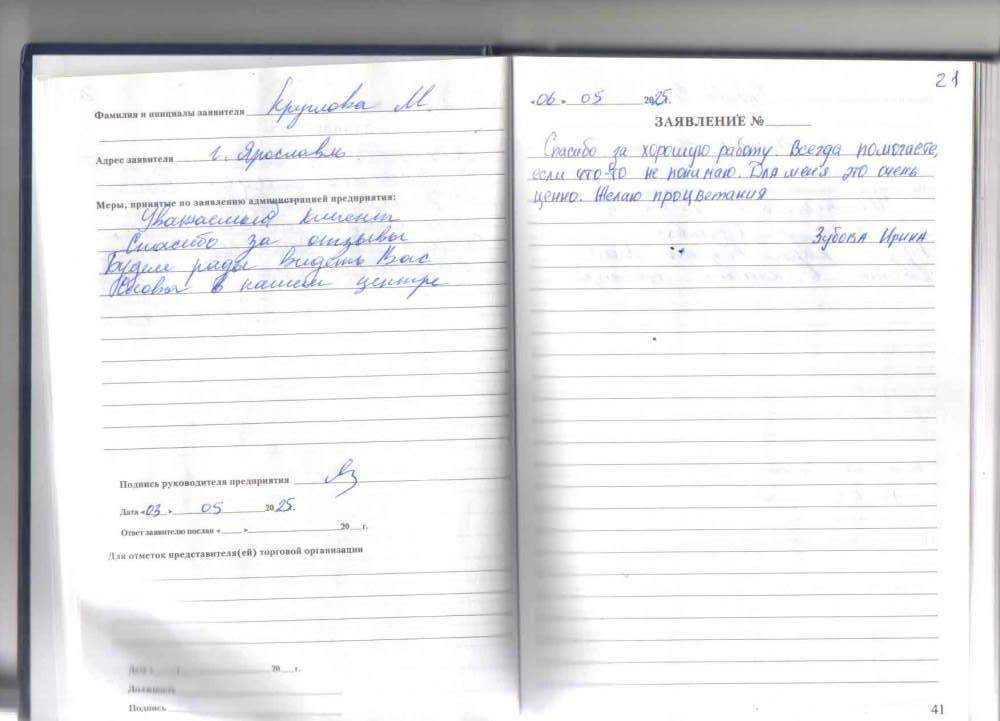 Фамилия и инициалы заявителя Круглова М
Адрес заявителя г. Ярославль
Меры, принятые по заявлению администрацией предприятия:
Уважаемый клиент
Спасибо за отзывы
Будем рады видеть Вас
в нашем центре
Подпись руководителя предприятия
Дата «03» 05 2025г.
Ответ заявителю послан « » 20 г.
Для отметок представителя(ей) торговой организации
Дата « » 20 г.
Должность
Подпись
21
«06» 05 2025г.
ЗАЯВЛЕНИЕ №
Спасибо за хорошую работу. Всегда помогаете,
если что-то не понимаю. Для меня это очень
ценно. Желаю процветания
Зубова Ирина
41